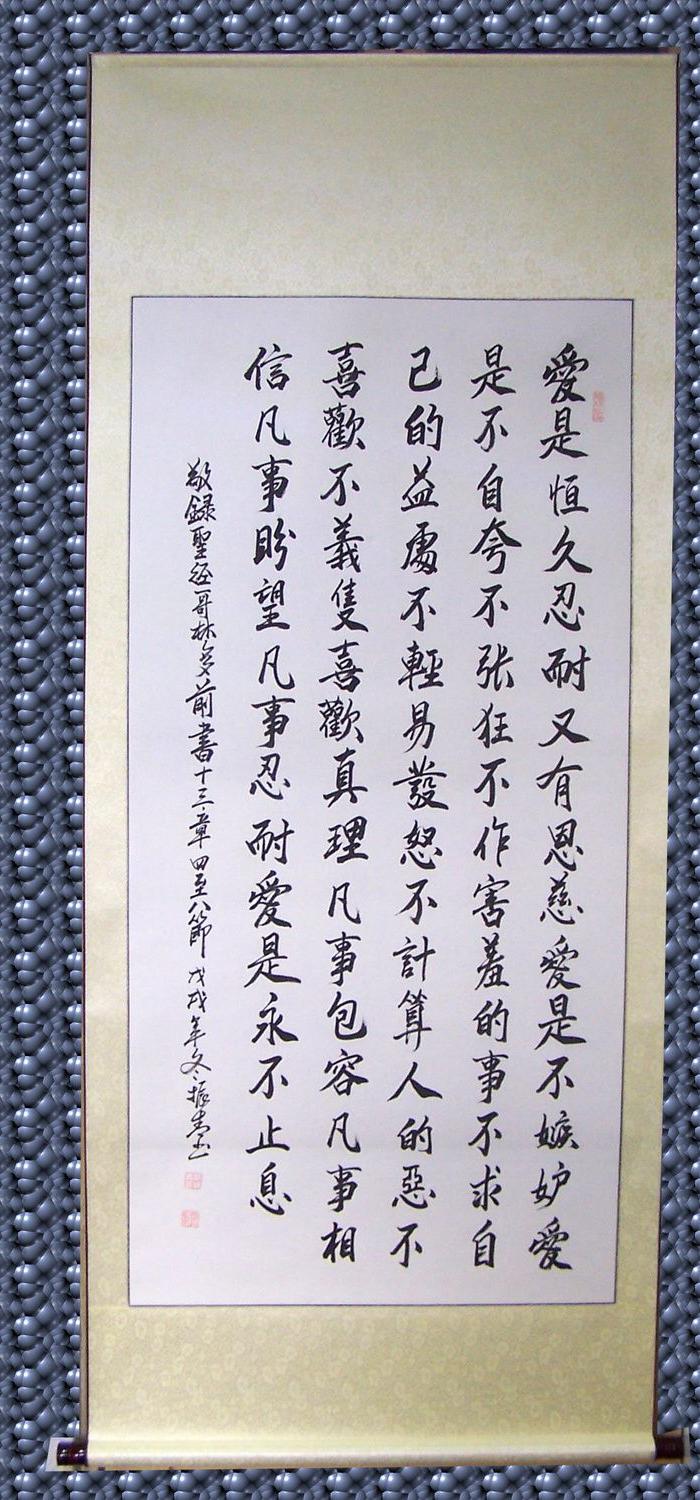 愛是恒久忍耐又有恩慈愛是不嫉妒愛
是不自夸不張狂不作害羞的事不求自
己的益處不輕易發怒不計算人的惡不
喜歡不義隻喜歡真理凡事包容凡事相
信凡事盼望凡事忍耐愛是永不止息
敬録聖經哥林多前書十三章四至八節 戊戌年冬